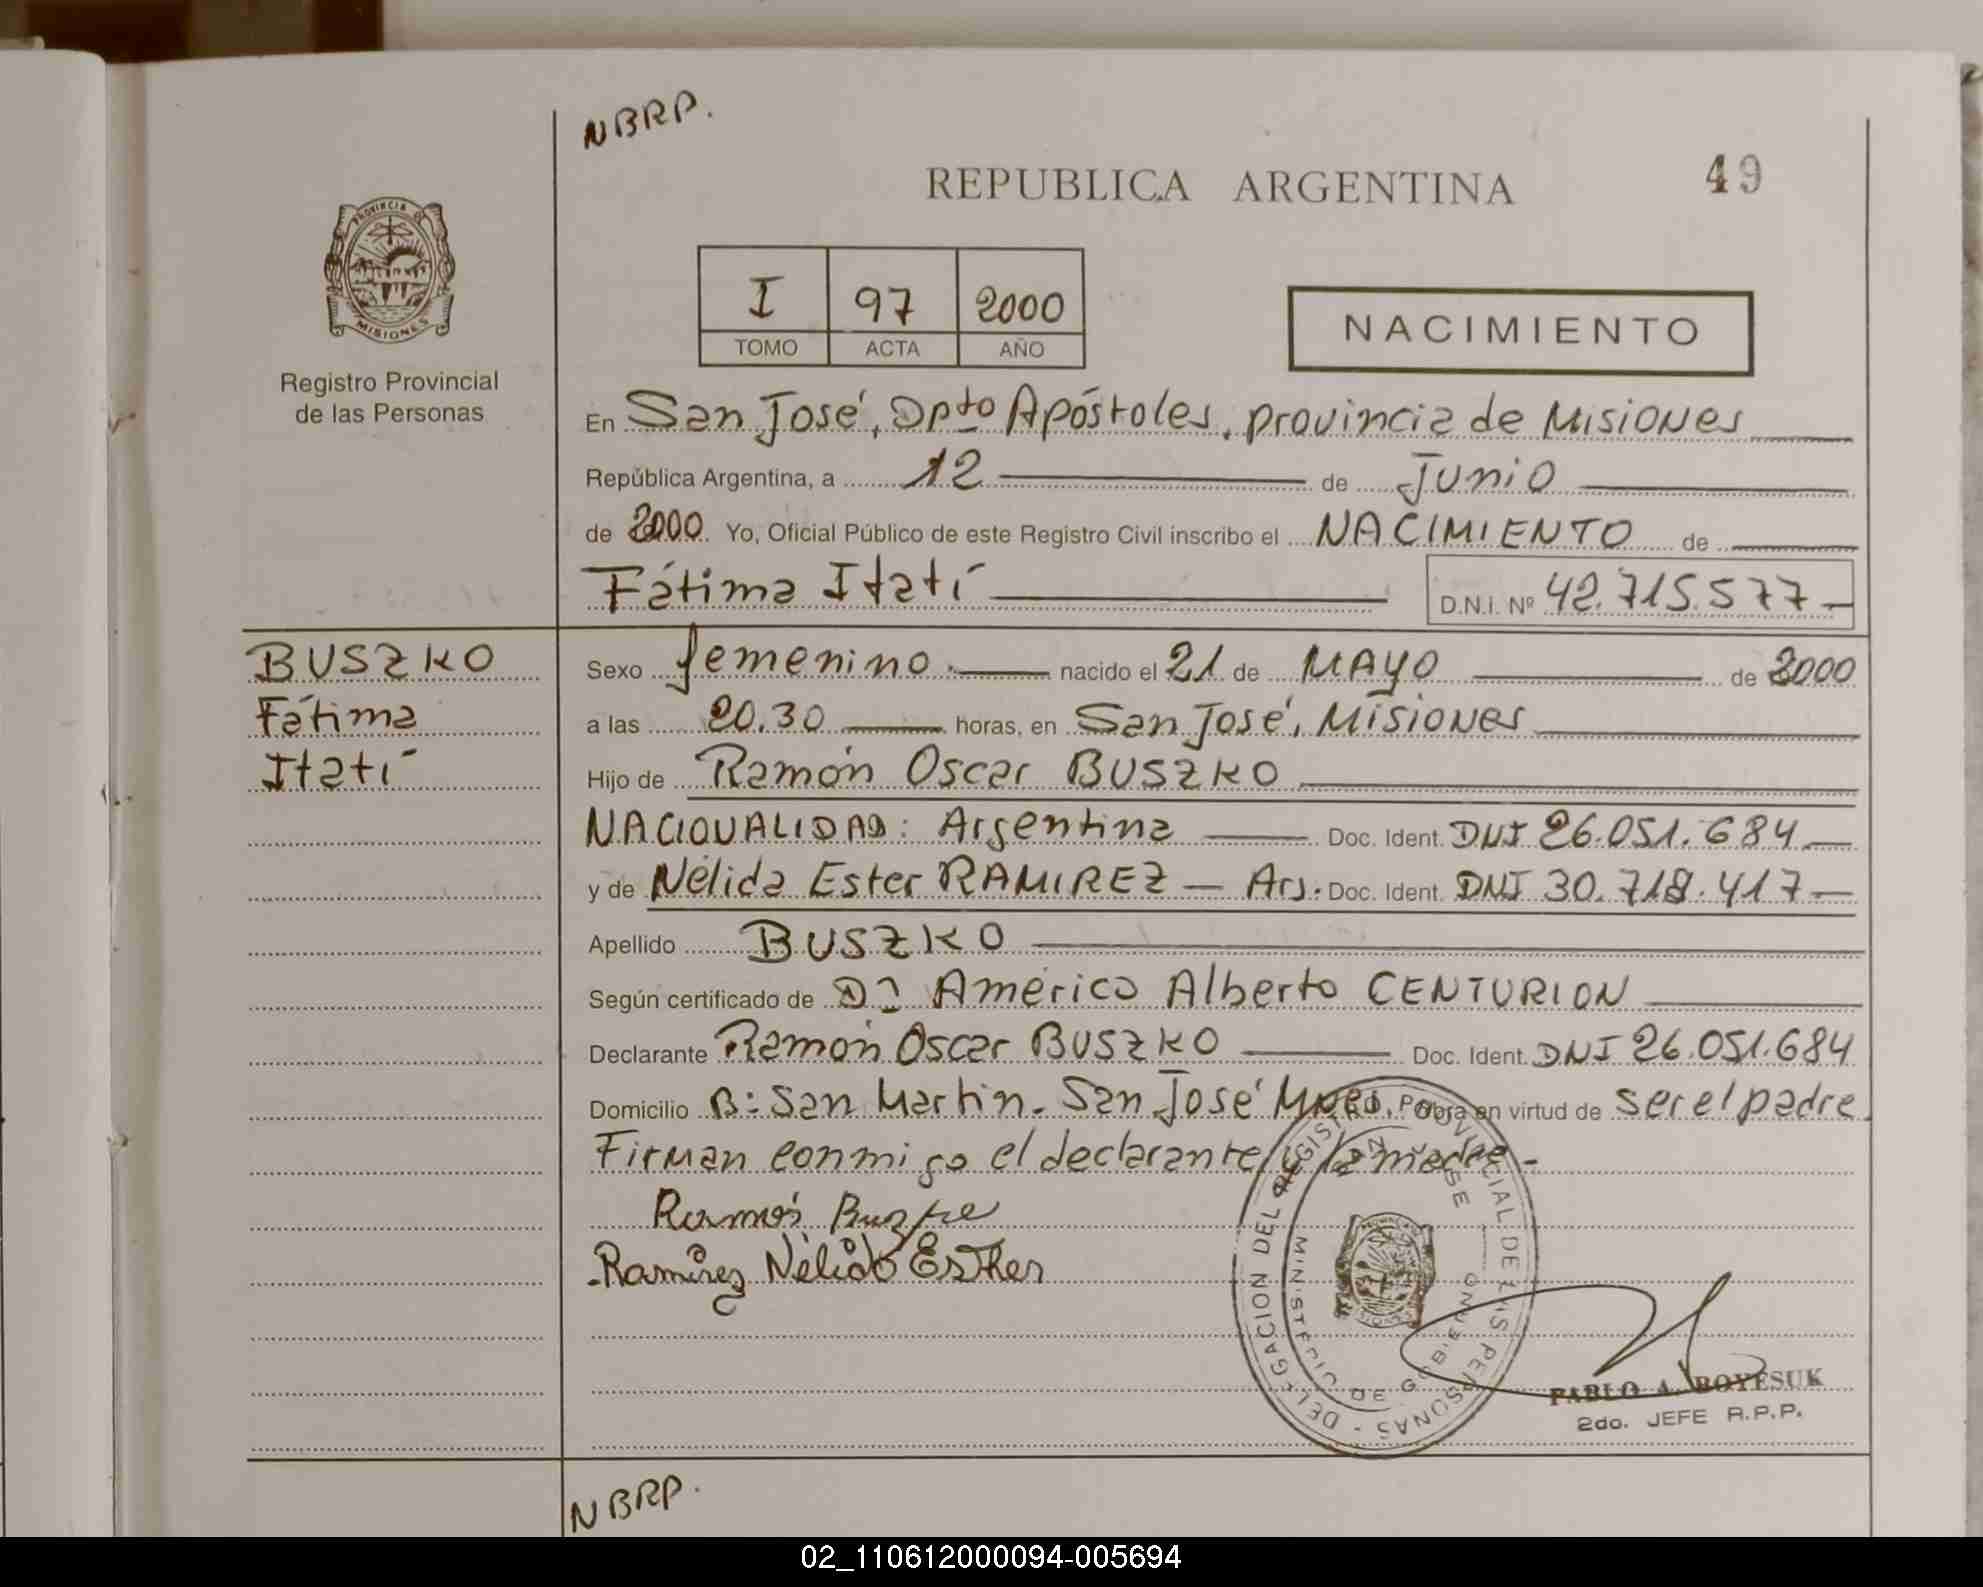 NBRP.
REPUBLICA ARGENTINA
49
PROVINCIA DE
MISIONES
Registro Provincial
de las Personas
I 97 2000
TOMO ACTA AÑO
NACIMIENTO
En San José, Dpto Apóstoles, provincia de Misiones
República Argentina, a 12 de Junio
de 2000. Yo, Oficial Público de este Registro Civil inscribo el NACIMIENTO de
Fátima Itatí
D.N.I. Nº 42.715.577
BUSZKO
Fátima
Itatí
Sexo femenino. nacido el 21 de MAYO de 2000
a las 20.30 horas, en San José, Misiones
Hijo de Ramón Oscar BUSZKO
NACIONALIDAD: Argentina Doc. Ident. DNI 26.051.684
y de Nélida Ester RAMIREZ — Arg. Doc. Ident. DNI 30.718.417
Apellido BUSZKO
Según certificado de Dr Américo Alberto CENTURION
Declarante Ramón Oscar BUSZKO Doc. Ident. DNI 26.051.684
Domicilio B: San Martin. San José Mnes. Obra en virtud de ser el padre
Firman conmigo el declarante y la madre.-
Ramón
Ramirez Nélida Esther
DELEGACION DEL REGISTRO PROVINCIAL DE LAS PERSONAS -
MINISTERIO DE GOBIERNO
PABLO A. BOYESUK
2do. JEFE R.P.P.
NBRP.
02_110612000094-005694